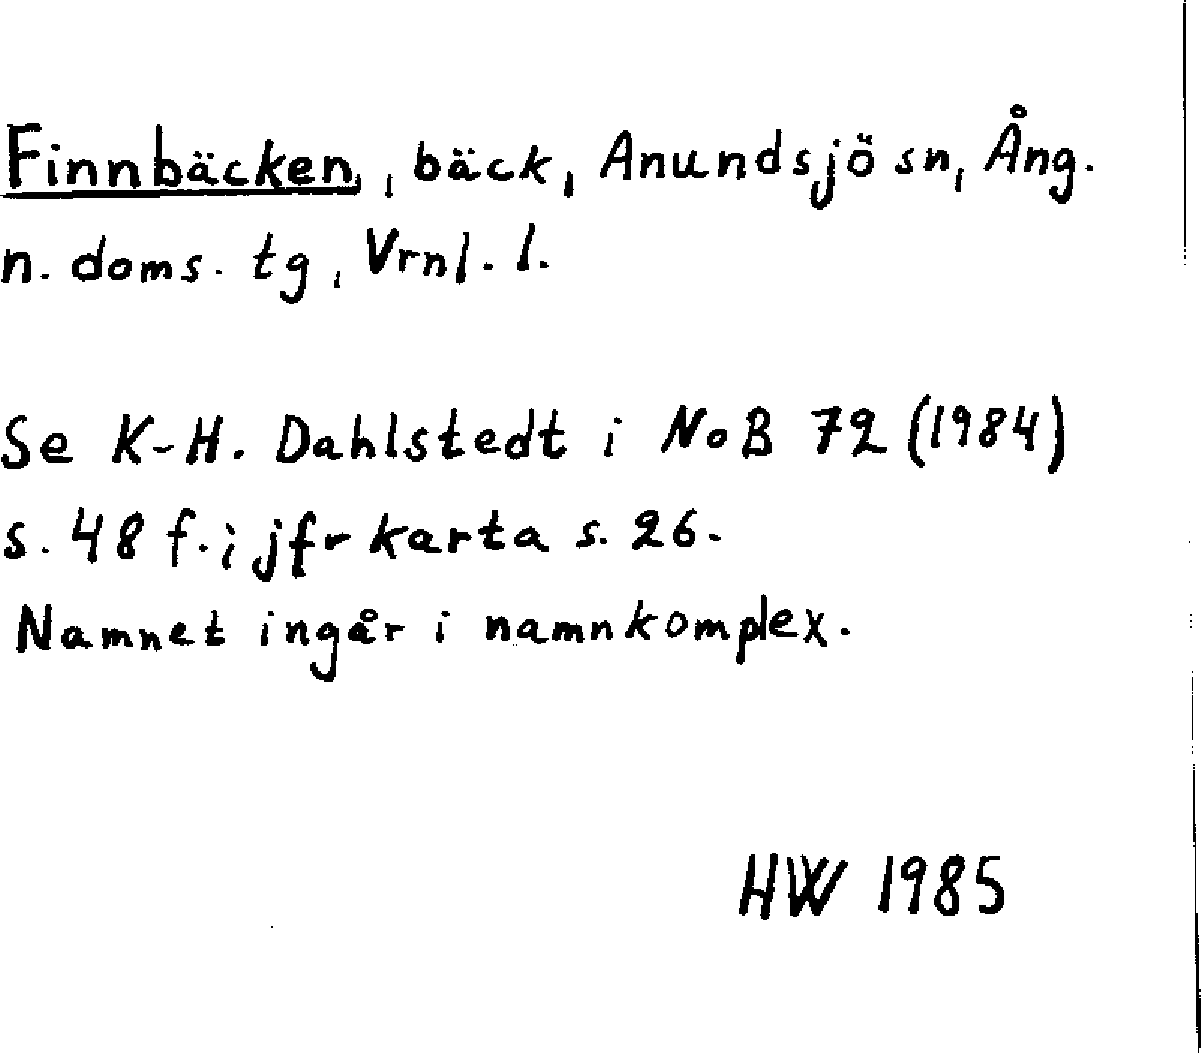 Finnbäcken, bäck, Anundsjö sn, Ång.
n. doms. tg, Vrnl. l.
Se K-H. Dahlstedt i NoB 72 (1984)
s. 48 f.; jfr karta s. 26.
Namnet ingår i namnkomplex.
HW 1985